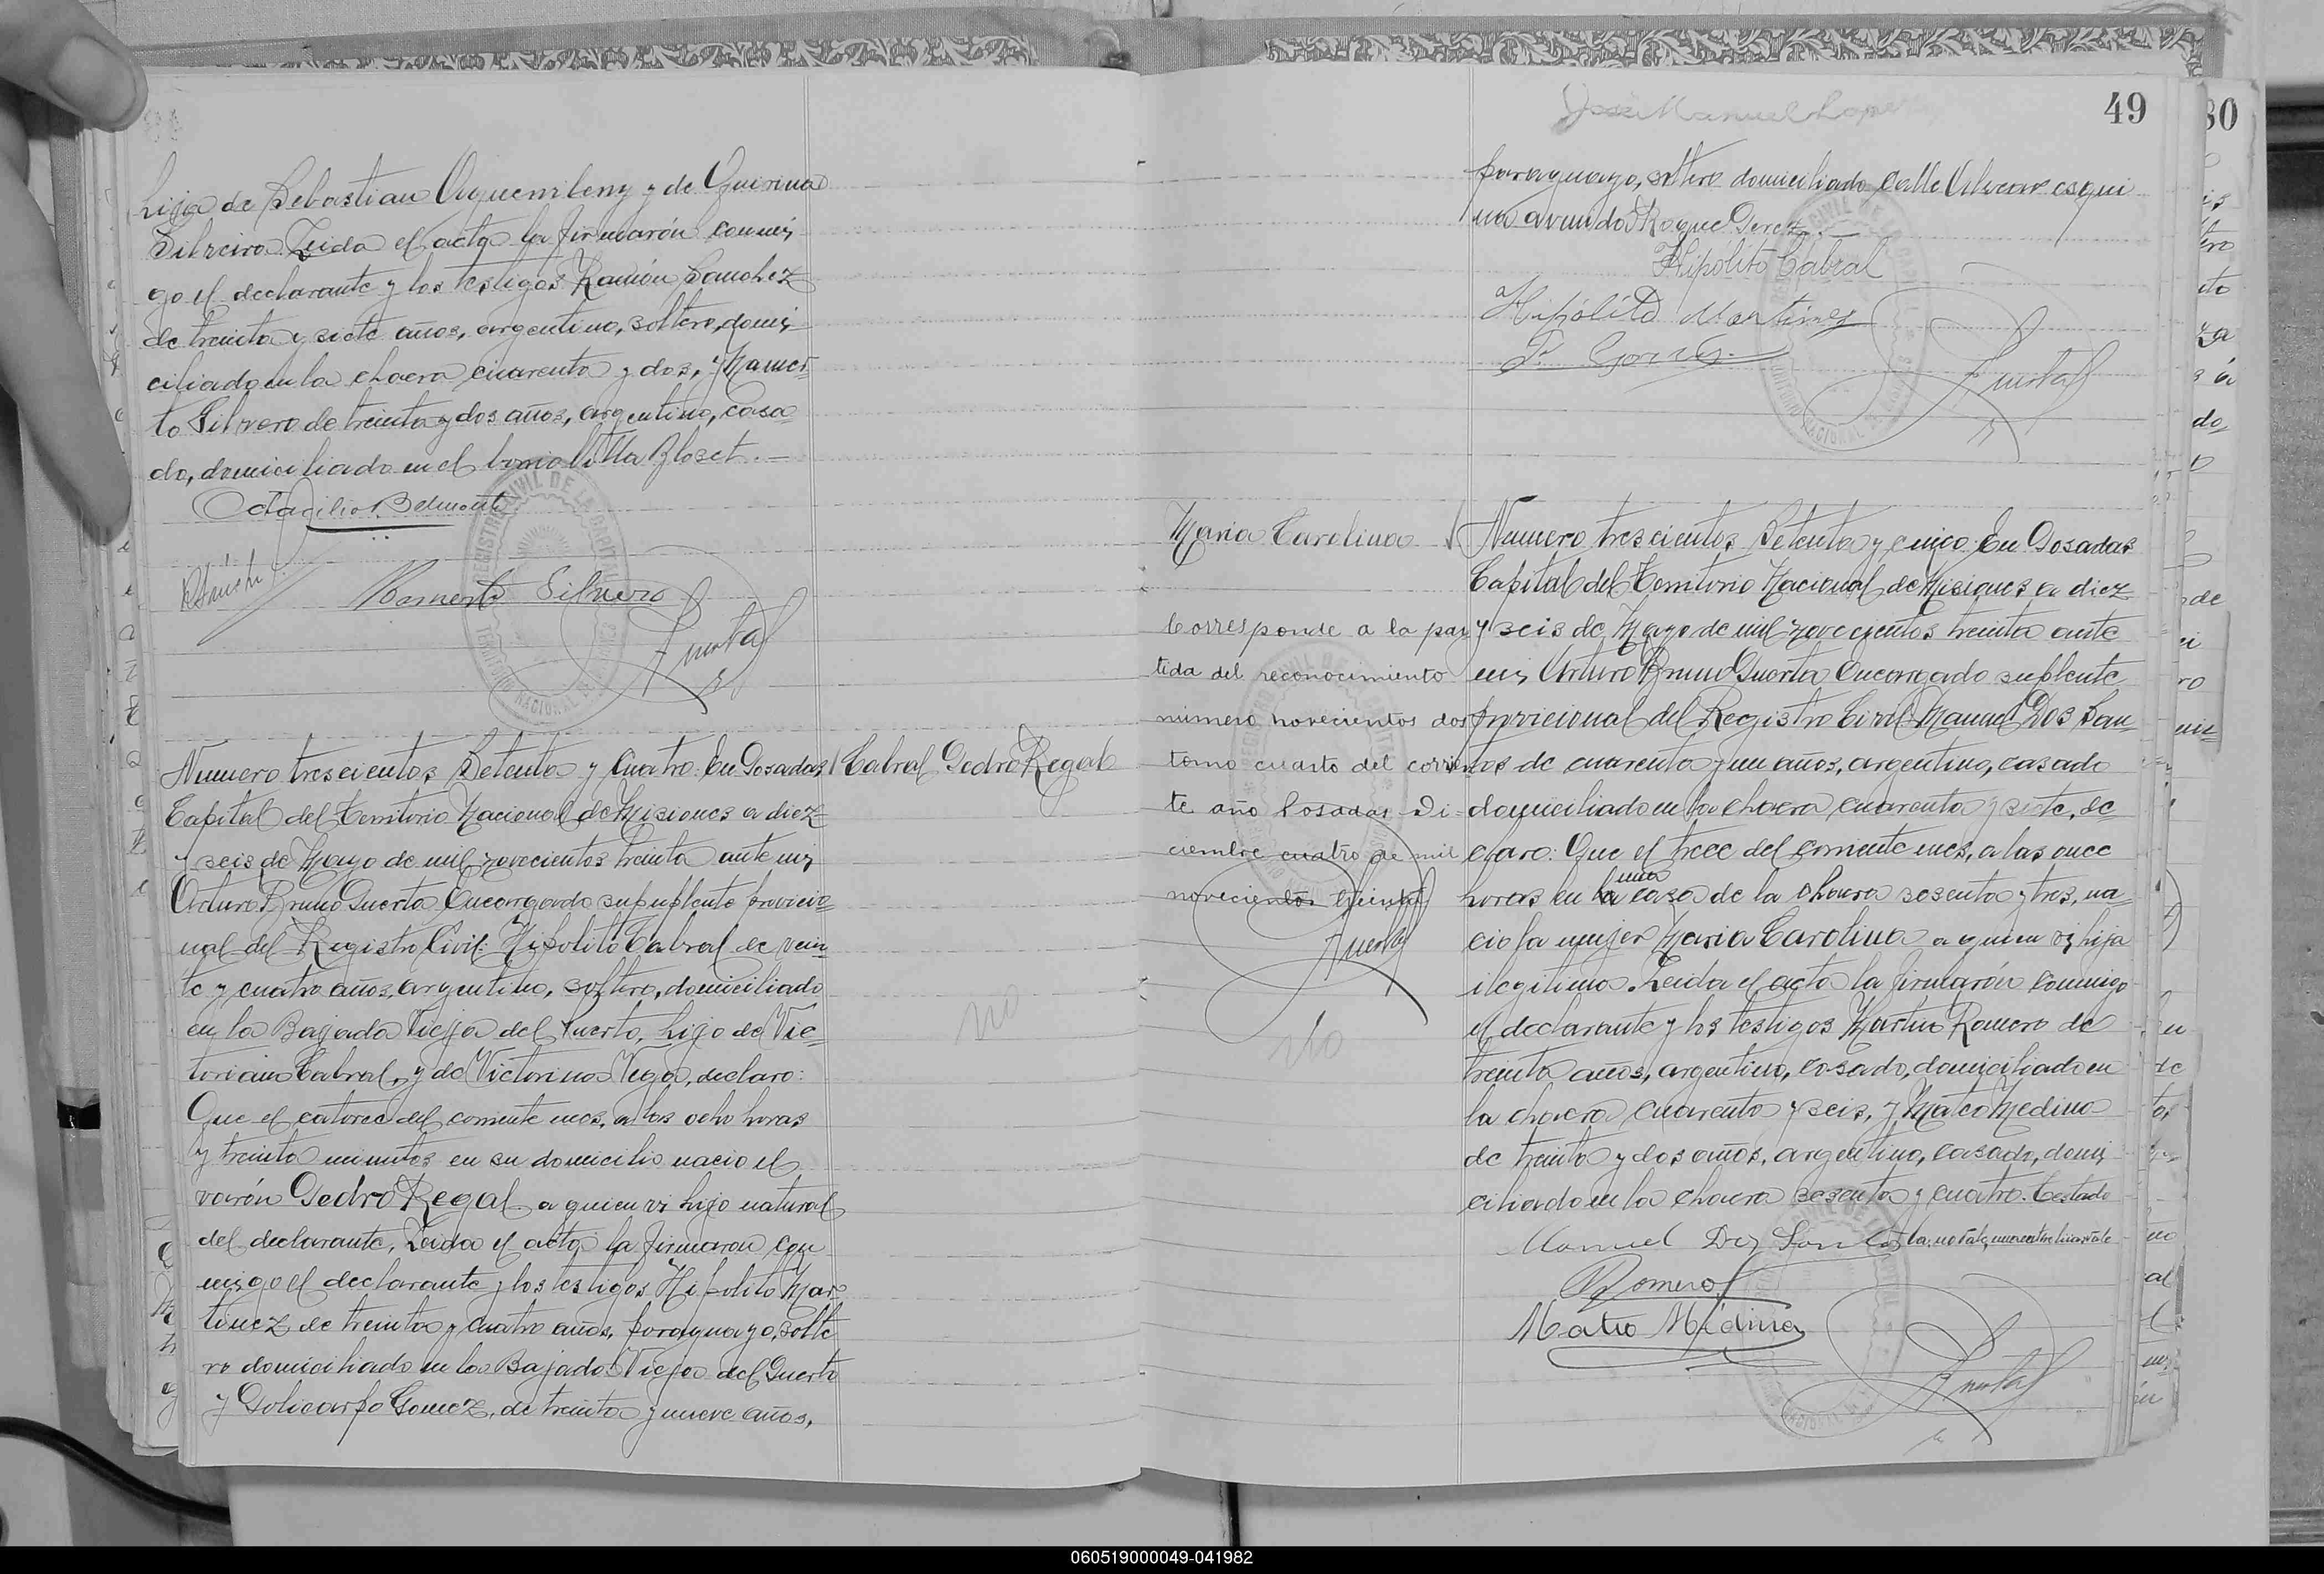 hija de Sebastian Ayquemileny y de Quirina
Silveira. Leida el acta la firmarón conmi
go el declarante y los testigos Ramón Sanchez
de treinta y siete años, argentino, soltero, domi
ciliado en la chacra cuarenta y dos, y Mamer
to Silvero de treinta y dos años, argentino, casa
do, domiciliado en el
Octacilio Belmonte
Mamerto Silvero
Numero trescientos Setenta y Cuatro. En Posadas
Capital del Territorio Nacional de Misiones a diez
y seis de Mayo de mil novecientos treinta ante mi
Arturo Bruno Puerta Encargado supuplente provicio
nal del Registro Civil: Hipolito Cabral de vein
te y cuatro años, argentino, soltero, domiciliado
en la Bajada Vieja del Puerto, hijo de Vic
toriano Cabral, y de Victorina Vega, declaro:
Que el catorce del corriente mes, a las ocho horas
y treinta minutos en su domicilio nacio el
varón Pedro Regal a quien vi hijo natural
del declarante, Leida el acta la firmaron con
migo el declarante y los testigos Hipolito Mar
tinez de treinta y cuatro años, paraguayo, solte
ro domiciliado en la Bajada Vieja del Puerto
y Policarpo Gomez, de treinta y nueve años,
Cabral Pedro Regal
no
49
José Manuel Lopez
paraguayo, soltero domiciliado calle Alvear esqui
na avenida Roque Perez.
Hipólito Cabral
Hipólito Martinez
P. Gomez
Puerta
Maria Carolina
Corresponde a la par
tida del reconocimiento
número novecientos dos
tomo cuarto del corrien
te año Posadas Di-
ciembre cuatro de mil
novecientos treinta
Puerta
no
Numero trescientos Setenta y cinco. En Posadas
Capital del Territorio Nacional de Misiones a diez
y seis de Mayo de mil novecientos treinta ante
mi, Arturo Bruno Puerta Encargado suplente
provicional del Registro Civil Manuel Dos San
tos de cuarenta y un años, argentino, casado
domiciliado en la chacra cuarenta y siete, de
claro: Que el trece del corriente mes, a las once
horas en la una casa de la chacra sesenta y tres, na
cio la mujer Maria Carolina a quien vi hija
ilegitima. Leida el acta la firmarón conmigo
el declarante y los testigos Martin Romero de
treinta años, argentino, casado, domiciliado en
la chacra cuarenta y seis, y Mateo Medina
de treinta y dos años, argentino, casado, domi
ciliado en la chacra sesenta y cuatro. Testado
la. no vale, una entre lineas vale
Manuel Dos Santos
Romero
Mateo Medina
Puerta
80
060519000049-041982